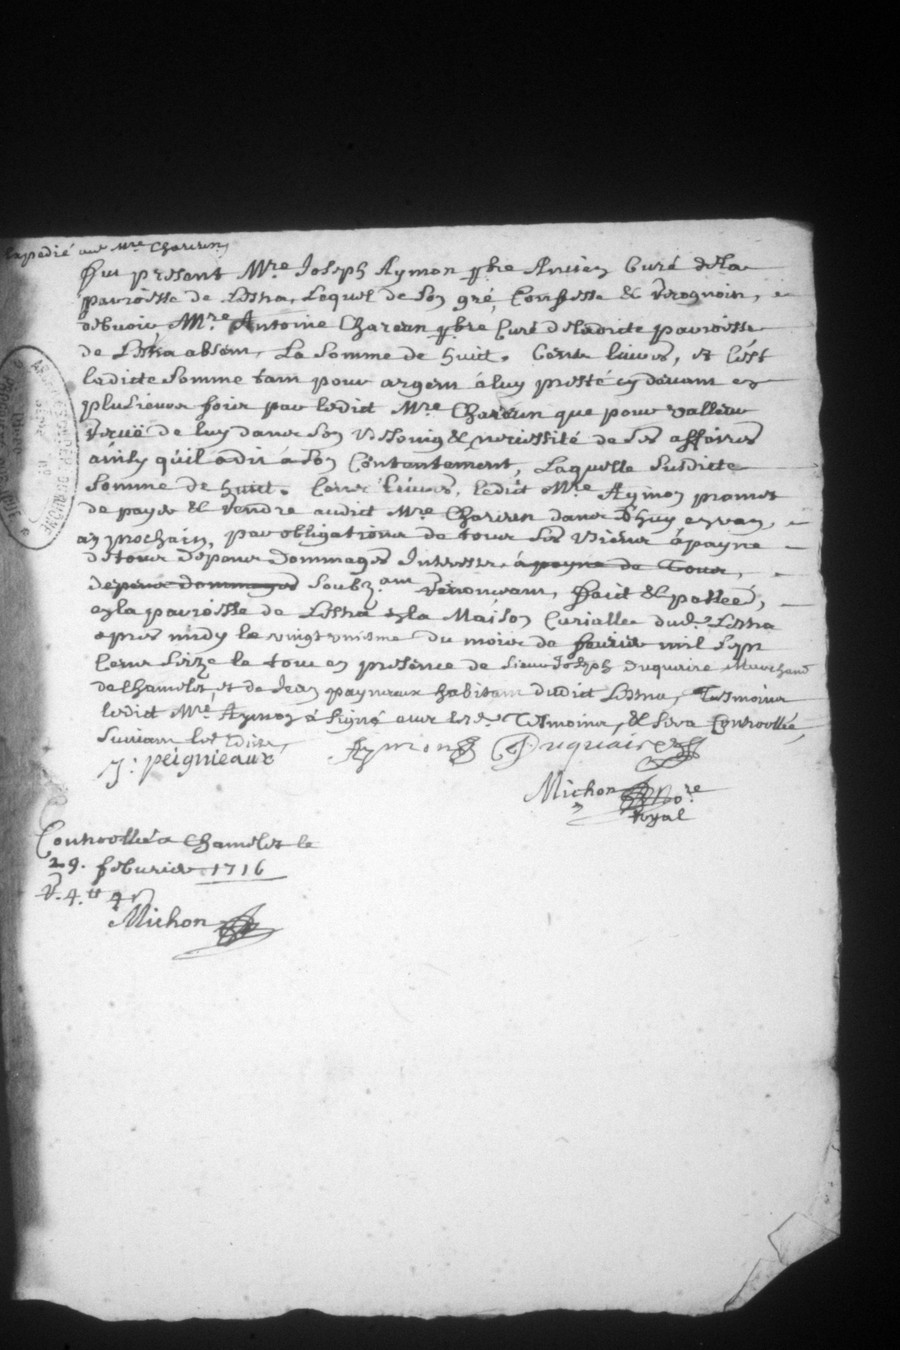 Expedié aud Mre Chareun
Fut present Mre Joseph Aymon pbre Antien Curé de la
parroisse de Lestra, Lequel de son gré, Confesse & Recognoit,
debvoir, Mre Antoine Chareun pbre Curé de ladicte parroisse
de Lestra absent, La somme de huit. Cents livres, et C'est
ladicte somme tant pour argent à luy presté cy devant en
plusieurs fois par ledict Mre Chareun que pour valleur
Receüe de luy dans son Besoing & necessité de ses affaires
ainsy qu'il a dit à son Contantement, Laquelle susdicte
somme de huit. Cents Livres, ledict Mre Aymon promet
de payer & Rendre audict Mre Chareun dans d'huy en un,
an prochain, par obligations de tous ses Biens à payne
de tous depans dommages Interests à payne de Tous,
depans dommages soubz.ant Renonceant, faict & passeé,
en la parroisse de Lestra en la Maison Curialle dud. Lestra
apres midy le vingt uniesme du mois de febvrier mil sept
Cents seize le tout en presence de sieur Joseph Duquaire Marchand
de Chamelet et de Jean payneaux habitant dudict Lestra, Tesmoins
ledict Mre Aymon à signé avec lesd. Tesmoins, & sera Controollée,
suivant les Edits,
J: peignieaux Aymon Duquaire
Michon No.re
Royal
Controollé a Chamelet le
29. febvrier 1716
R. 4.tt
Michon